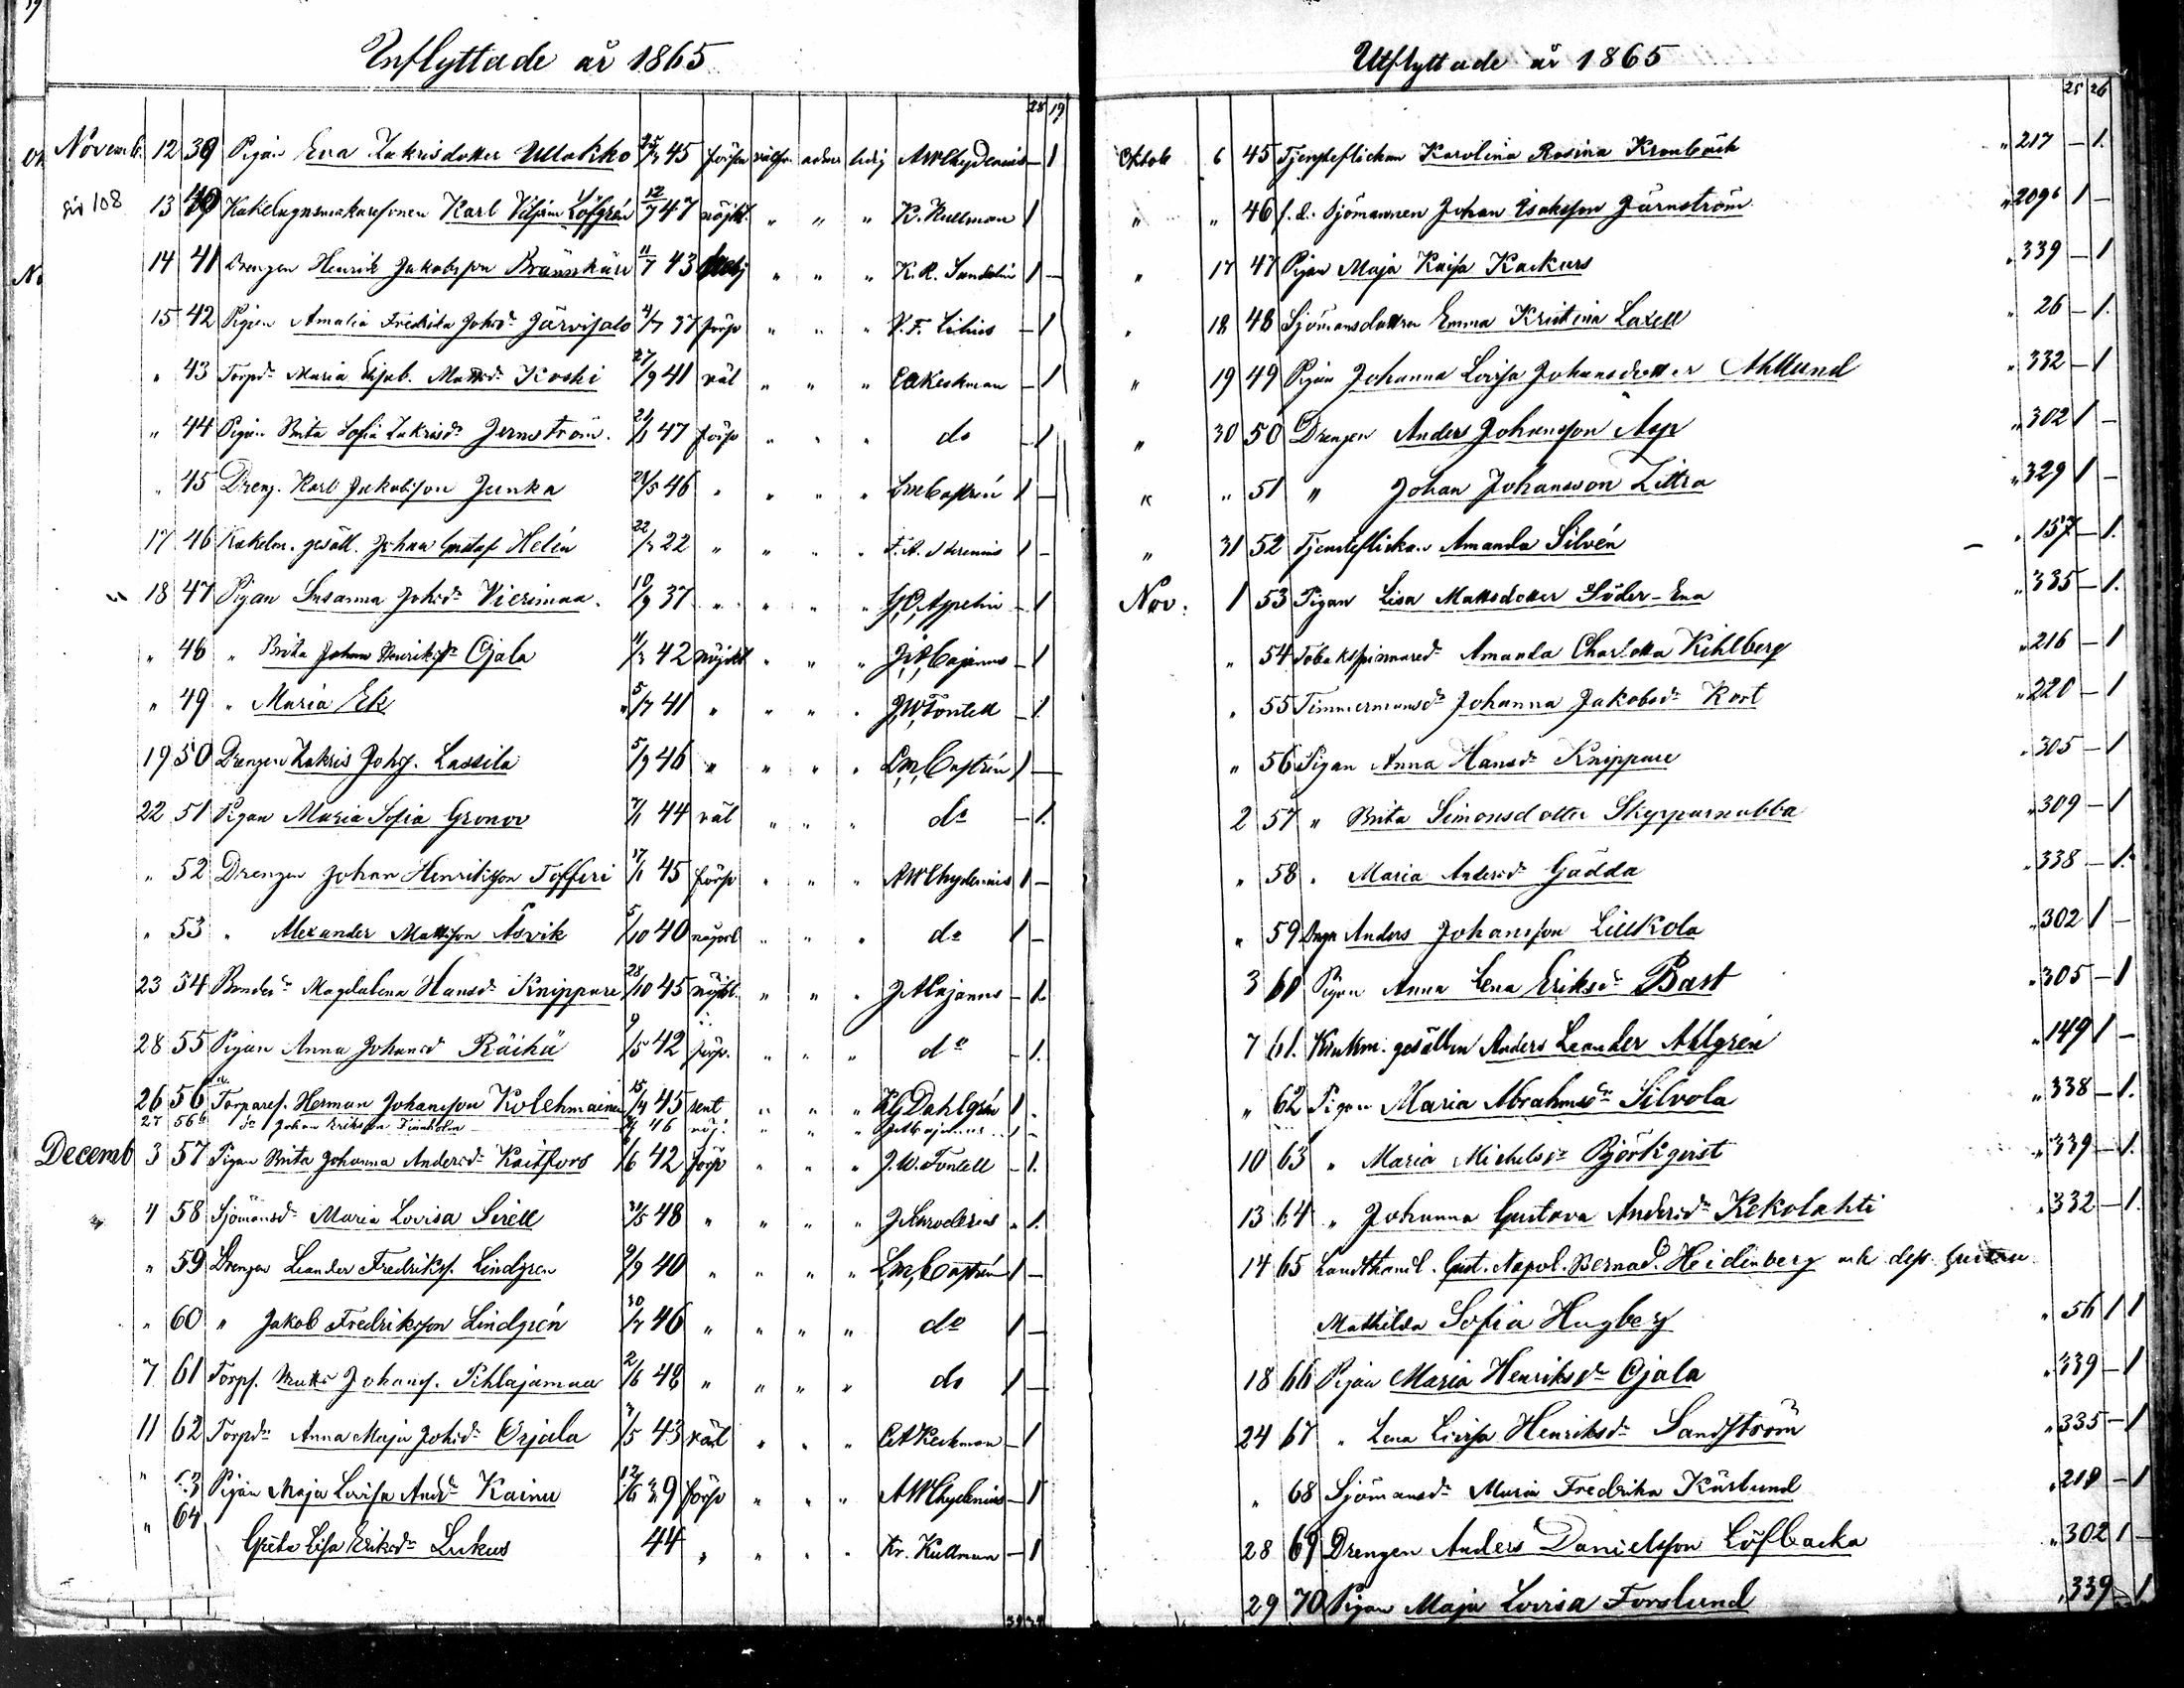 Inflyttade år 1865
28 19
Novemb. 12 39 Pigan Eva Zakrisdotter Ullatiko 45 försv AWChydenius – 1
sid 108 13 40 Kakelugnsmakaresonen Karl Vilhim Löfgrén 12/7 47 nöjkl. " " " K. Kullman 1
14 41 Drengen Henrik Jakobsson Brännkärr 11/7 43 " " " K.R. Sandelin 1 –
15 42 Pigan Amalia Fredrika Johsdr Järvisalo 4/7 37 försv " " " V.F. Lilius – 1
" 43 Torpdr Maria Elisab. Mattsdr Koski 27/9 41 väl " " " CAKeckman – 1
" 44 Pigan Brita Sofia Zakrisdr Jernström. 21/1 47 försv " " " do – 1
" 45 Dreng. Karl Jakobsson Junka 28/5 46 " " " " LMCastrén 1 –
17 46 Kakelm. gesäll. Johan Gustaf Helén 22/3 22 " " " " 1 –
" 18 47 Pigan Susanna Johsdr Viersimaa. 10/9 37 " " " " Appelin – 1
" 48 " Brita Johan Henriksdr Ojala 11/3 42 nöjkl " " " JACajanus – 1
" 49 " Maria Ek 5/7 41 " " " " JWFontell – 1.
19 50 Drengen Zakris Johs. Lassila 5/9 46 " " " " LMCastrén 1 –
22 51 Pigan Maria Sofia Gronov 7/1 44 väl " " " do – 1.
" 52 Drengen Johan Henriksson Tofferi 17/1 45 försv " " " AWChydenius 1 –
" 53 " Alexander Mattsson Åsvik 5/10 40 " " " do 1 –
23 54 Bondedr Magdalena Hansdr Knippare 28/10 45 nöjkl. " " " JACajanus – 1.
28 55 Pigan Anna Johansdr Räihä 9/5 42 försv. " " " do – 1.
26 56 Torpares. Herman Johansson Kolehmainen 15/4 45 " " " KGDahlgrén 1 .
27 56b do Johan Eriksson Finnholm 46 nöj. " " " JACajanus 1 –
Decemb 3 57 Pigan Brita Johanna Andersdr Kaitfors /6 42 försv " " " J.W. Fontell – 1.
4 58 Sjömansdr Maria Lovisa Sirell /5 48 " " " " – 1.
" 59 Drengen Leander Fredrikss. Lindgren 9/9 40 " " " " LMCastrén 1 –
" 60 " Jakob Fredriksson Lindgrén 30/7 46 " " " " do 1 –
7 61 Torps. Matts Johans. Pihlajamaa 2/6 48 " " " " do 1 –
11 62 Torpdr Anna Maja Johsdr Orjala /5 43 väl " " " CAKeckman – 1
" 63 Pigan Maja Lovisa Andr Kainu 12/6 39 försv " " " AWChydenius – 1
" 64 Greta Lisa Eriksdr Lukus 44 " " " " Kr. Kullman – 1
Utflyttade år 1865
25 26
Oktob 6 45 Tjensteflickan Karolina Rosina Kronbäck " 217 – 1.
" " 46 f.d. Sjömannen Johan Isaksson Järnström " 209b 1 –
" 17 47 Pigan Maja Kaisa Kackurs " 339 – 1
" 18 48 Sjömansdottren Emma Kristina Laxell " 26 – 1.
" 19 49 Pigan Johanna Lovisa Johansdotter Ahllund " 332 – 1
" 30 50 Drengen Anders Johansson Asp " 302 1 –
" " 51 " Johan Johansson Zittra " 329 1 –
" 31 52 Tjensteflickan Amanda Silvén " 157 – 1.
Nov. 1 53 Pigan Lisa Mattsdotter Söder-Ena " 335 – 1.
" 54 Tobakspinnaredr Amanda Charlotta Kihlberg " 216 – 1
" 55 Timmermansdr Johanna Jakobsdr Kort " 220 – 1
" 56 Pigan Anna Hansdr Knippare " 305 – 1
2 57 " Brita Simonsdotter Skepparnabba " 309 – 1
" 58 " Maria Andersdr Gädda " 338 – 1.
" 59 Drgn Anders Johansson Liukola " 302 1 –
3 60 Pigan Anna Lena Eriksdr Bast " 305 – 1
7 61. Krukm. gesällen Anders Leander Ahlgrén " 149 1 –
" 62 Pigan Maria Abrahmsdr Silvola " 338 – 1.
10 63 " Maria Michelsdr Björkqvist " 339 – 1.
13 64 " Johanna Gustava Andersdr Kekolahti " 332 – 1.
14 65 Landthandl. Gust. Napol. Bernad. Heidenberg och dess hustru
Mathilda Sofia Hugberg " 56 1 1
18 66 Pigan Maria Henriksdr Ojala " 339 – 1
24 67 " Lena Lovisa Henriksdr Sandström " 335 – 1
" 68 Sjömansdr Maria Fredrika Kärlund " 218 – 1
28 69 Drengen Anders Danielsson Löfbacka " 302 1 –
29 70 Pigan Maja Lovisa Forslund " 339 – 1